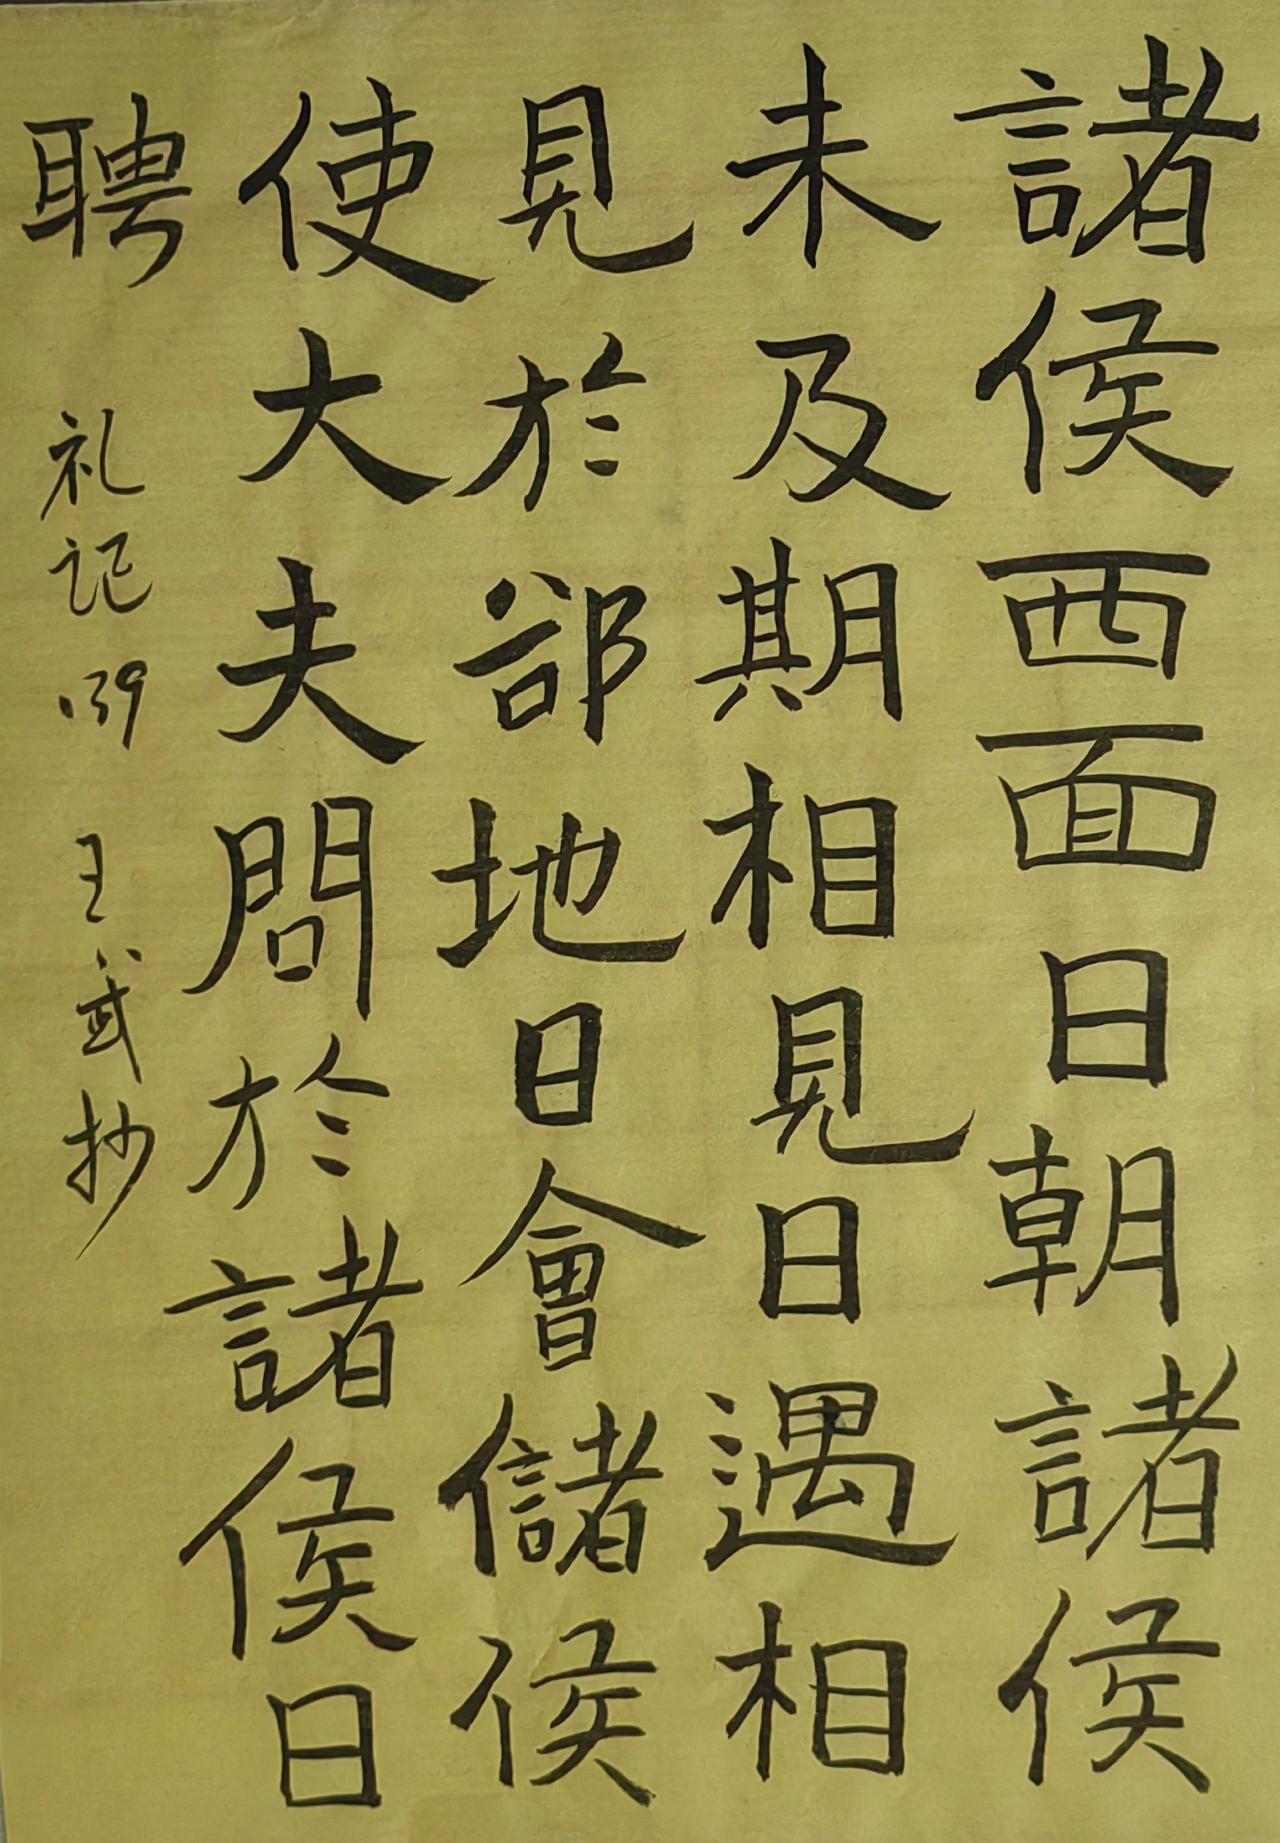 諸侯西面日朝諸侯
未及期相見日遇相
見於郤地日會儲侯
使大夫問於諸侯日
聘
礼记139 王武抄